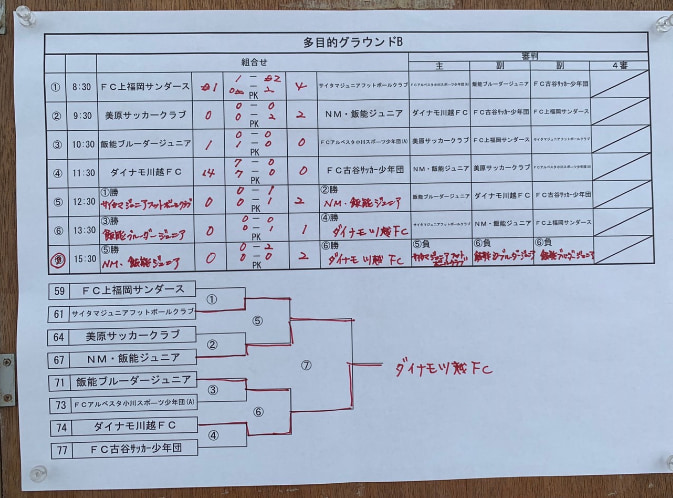 多目的グラウンドB
組合せ 審判
主 副 副 4審
① 8:30 FC上福岡サンダース 1 1 ー 2 ー 2 PK 4 サイタマジュニアフットボールクラブ FCアルベスタ小川スポーツ少年団(A) 飯能ブルーダージュニア FC古谷サッカー少年団
② 9:30 美原サッカークラブ 0 0 ー 0 0 ー 2 PK 2 NM・飯能ジュニア ダイナモ川越FC FC古谷サッカー少年団 FC上福岡サンダース
③ 10:30 飯能ブルーダージュニア 1 1 ー 0 0 ー 0 PK 0 FCアルベスタ小川スポーツ少年団(A) 美原サッカークラブ FC上福岡サンダース サイタマジュニアフットボールクラブ
④ 11:30 ダイナモ川越FC 14 7 ー 0 7 ー 0 PK 0 FC古谷サッカー少年団 NM・飯能ジュニア 美原サッカークラブ FCアルベスタ小川スポーツ少年団(A)
⑤ 12:30 ①勝 サイタマジュニアフットボールクラブ 0 0 ー 1 0 ー 1 PK 2 ②勝 NM・飯能ジュニア 飯能ブルーダージュニア ダイナモ川越FC FC古谷サッカー少年団
⑥ 13:30 ③勝 飯能ブルーダージュニア 0 0 ー 0 0 ー 1 PK 1 ④勝 ダイナモ川越FC サイタマジュニアフットボールクラブ NM・飯能ジュニア FC上福岡サンダース
⑦ 15:30 ⑤勝 NM・飯能ジュニア 0 0 ー 2 0 ー 0 PK 2 ⑥勝 ダイナモ川越FC ⑤負 サイタマジュニアフットボールクラブ ⑥負 飯能ブルーダージュニア ⑥負 飯能ブルーダージュニア
59 FC上福岡サンダース
①
61 サイタマジュニアフットボールクラブ
⑤
64 美原サッカークラブ
②
67 NM・飯能ジュニア
⑦ ダイナモ川越FC
71 飯能ブルーダージュニア
③
73 FCアルベスタ小川スポーツ少年団(A)
⑥
74 ダイナモ川越FC
④
77 FC古谷サッカー少年団